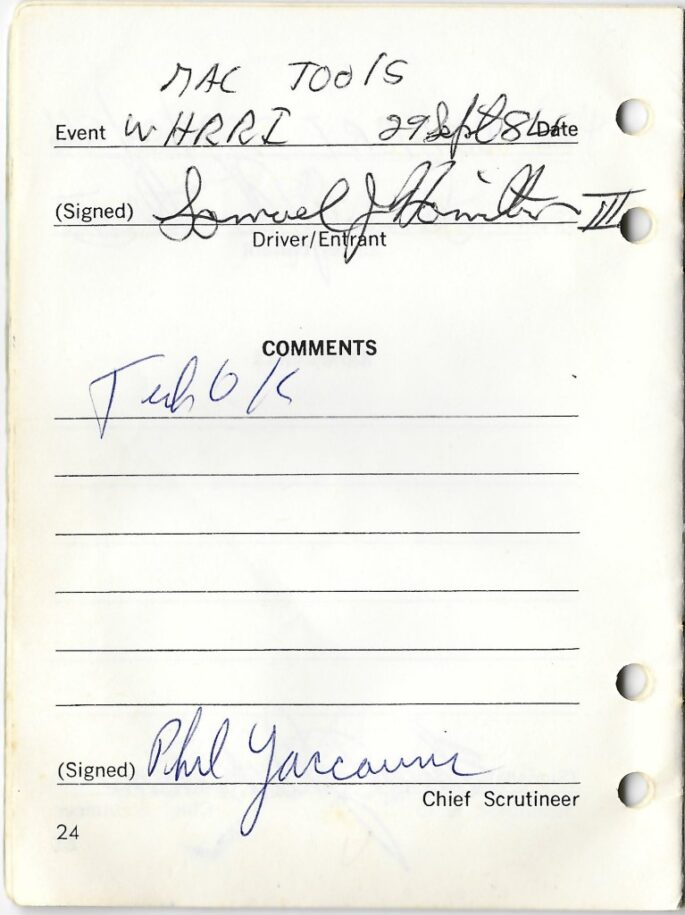 MAC TOOlS
Event WHRRI 29 Sept 84 Date
(Signed) Samuel J Hamilton III
Driver/Entrant
COMMENTS
Tech OK
(Signed) Phil
Chief Scrutineer
24